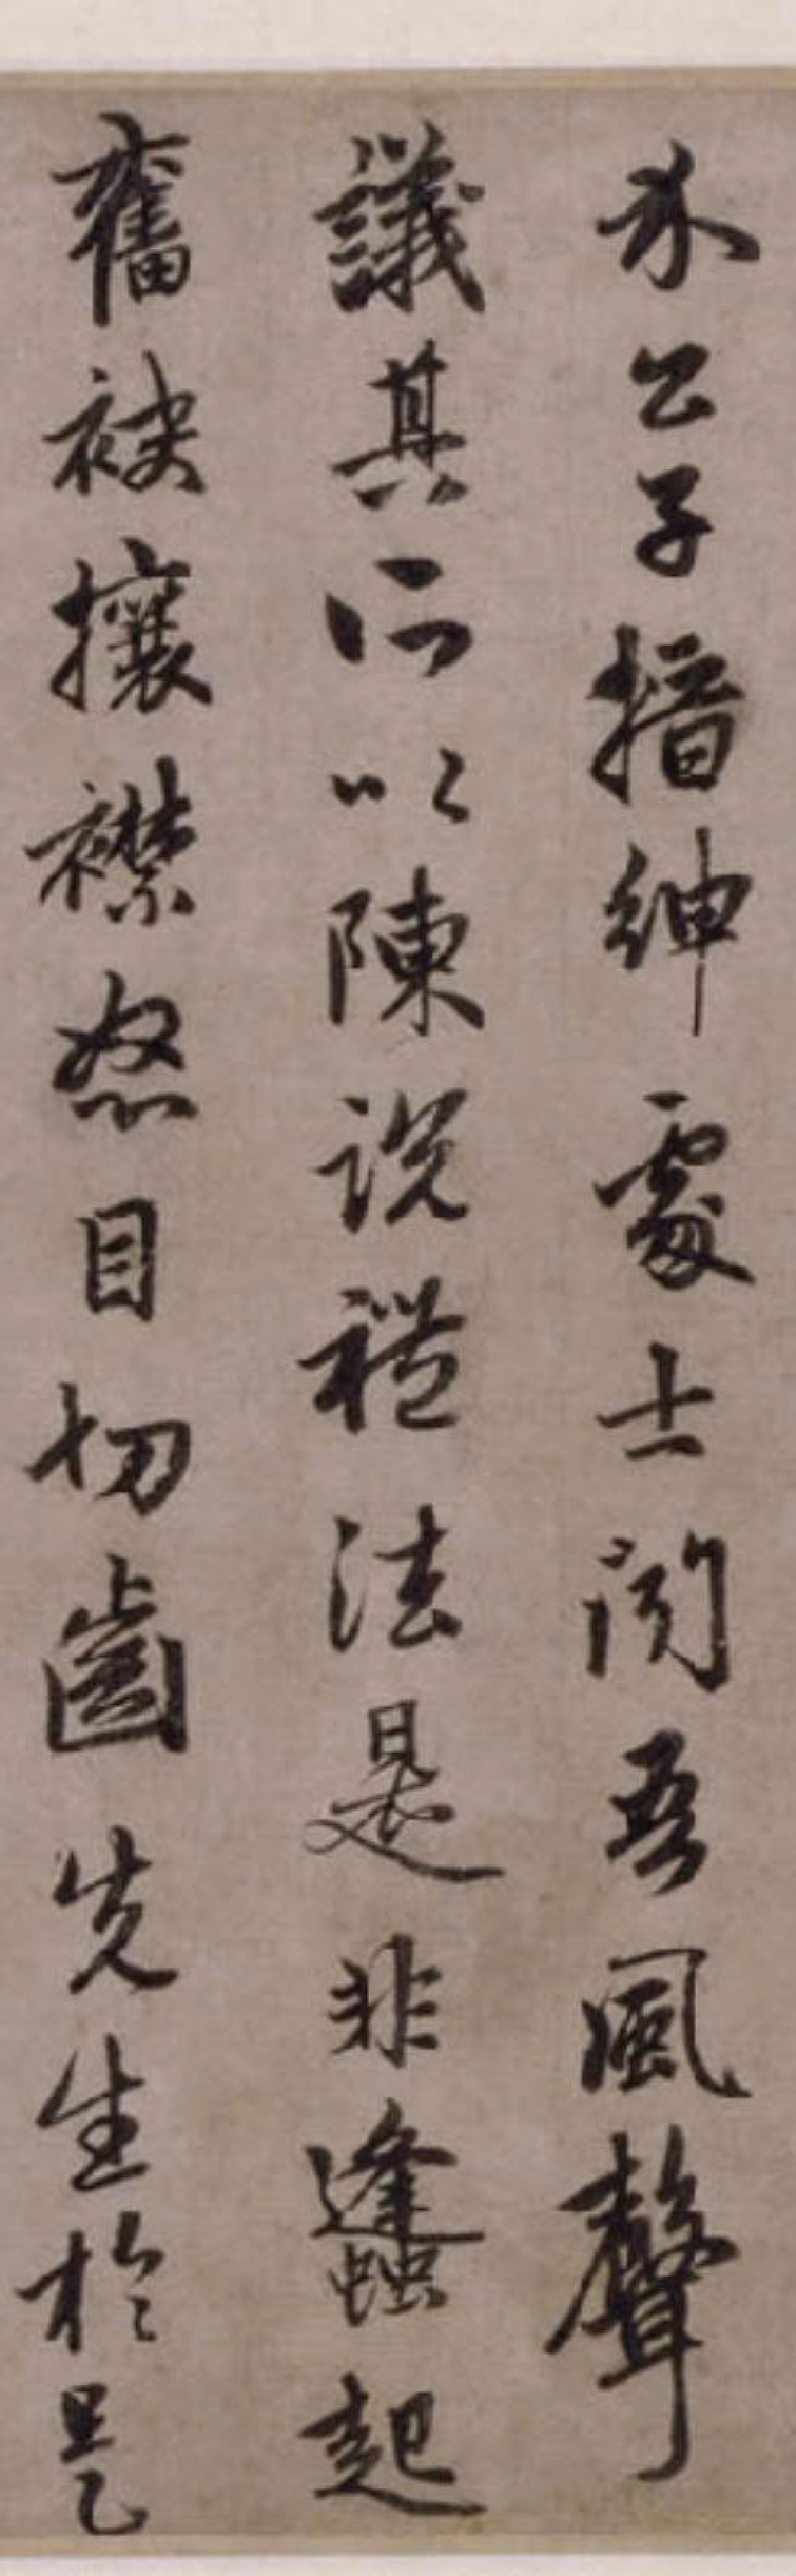 介公子搢紳處士聞吾風聲
議其所以陳説禮法是非蠭起
奮袂攘襟怒目切齒先生於是